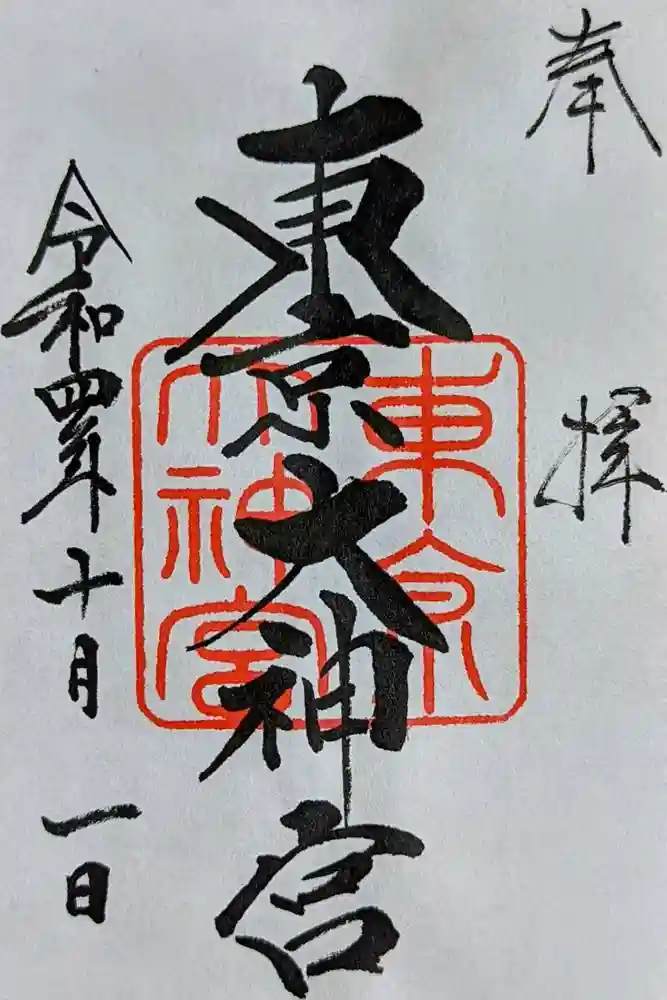 奉拝
東京大神宮
東京
大神宮
令和四年十月一日